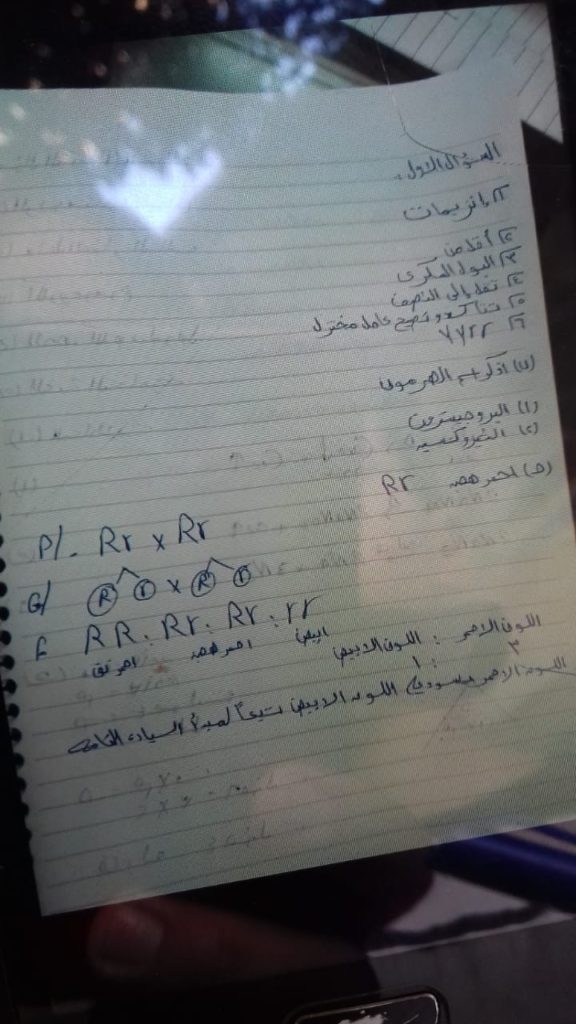 السؤال الاول:
١) انزيمات
٢) أقل من
٣) البول السكري
٤) تقل إلى النصف
٥) تتأكسد وتصبح عامل مختزل
٦) yyrr
(ب) اذكر اسم الهرمون
(١) البروجيسترون
(٢) الثيروكسين
(ج) احمر هجين Rr
P/. Rr x Rr
G/ R r x R r
F RR : Rr : Rr : rr
احمر نقي احمر هجين ابيض
اللون الاحمر : اللون الابيض
٣ : ١
اللون الاحمر يسود على اللون الابيض تبعاً لمبدأ السيادة التامة